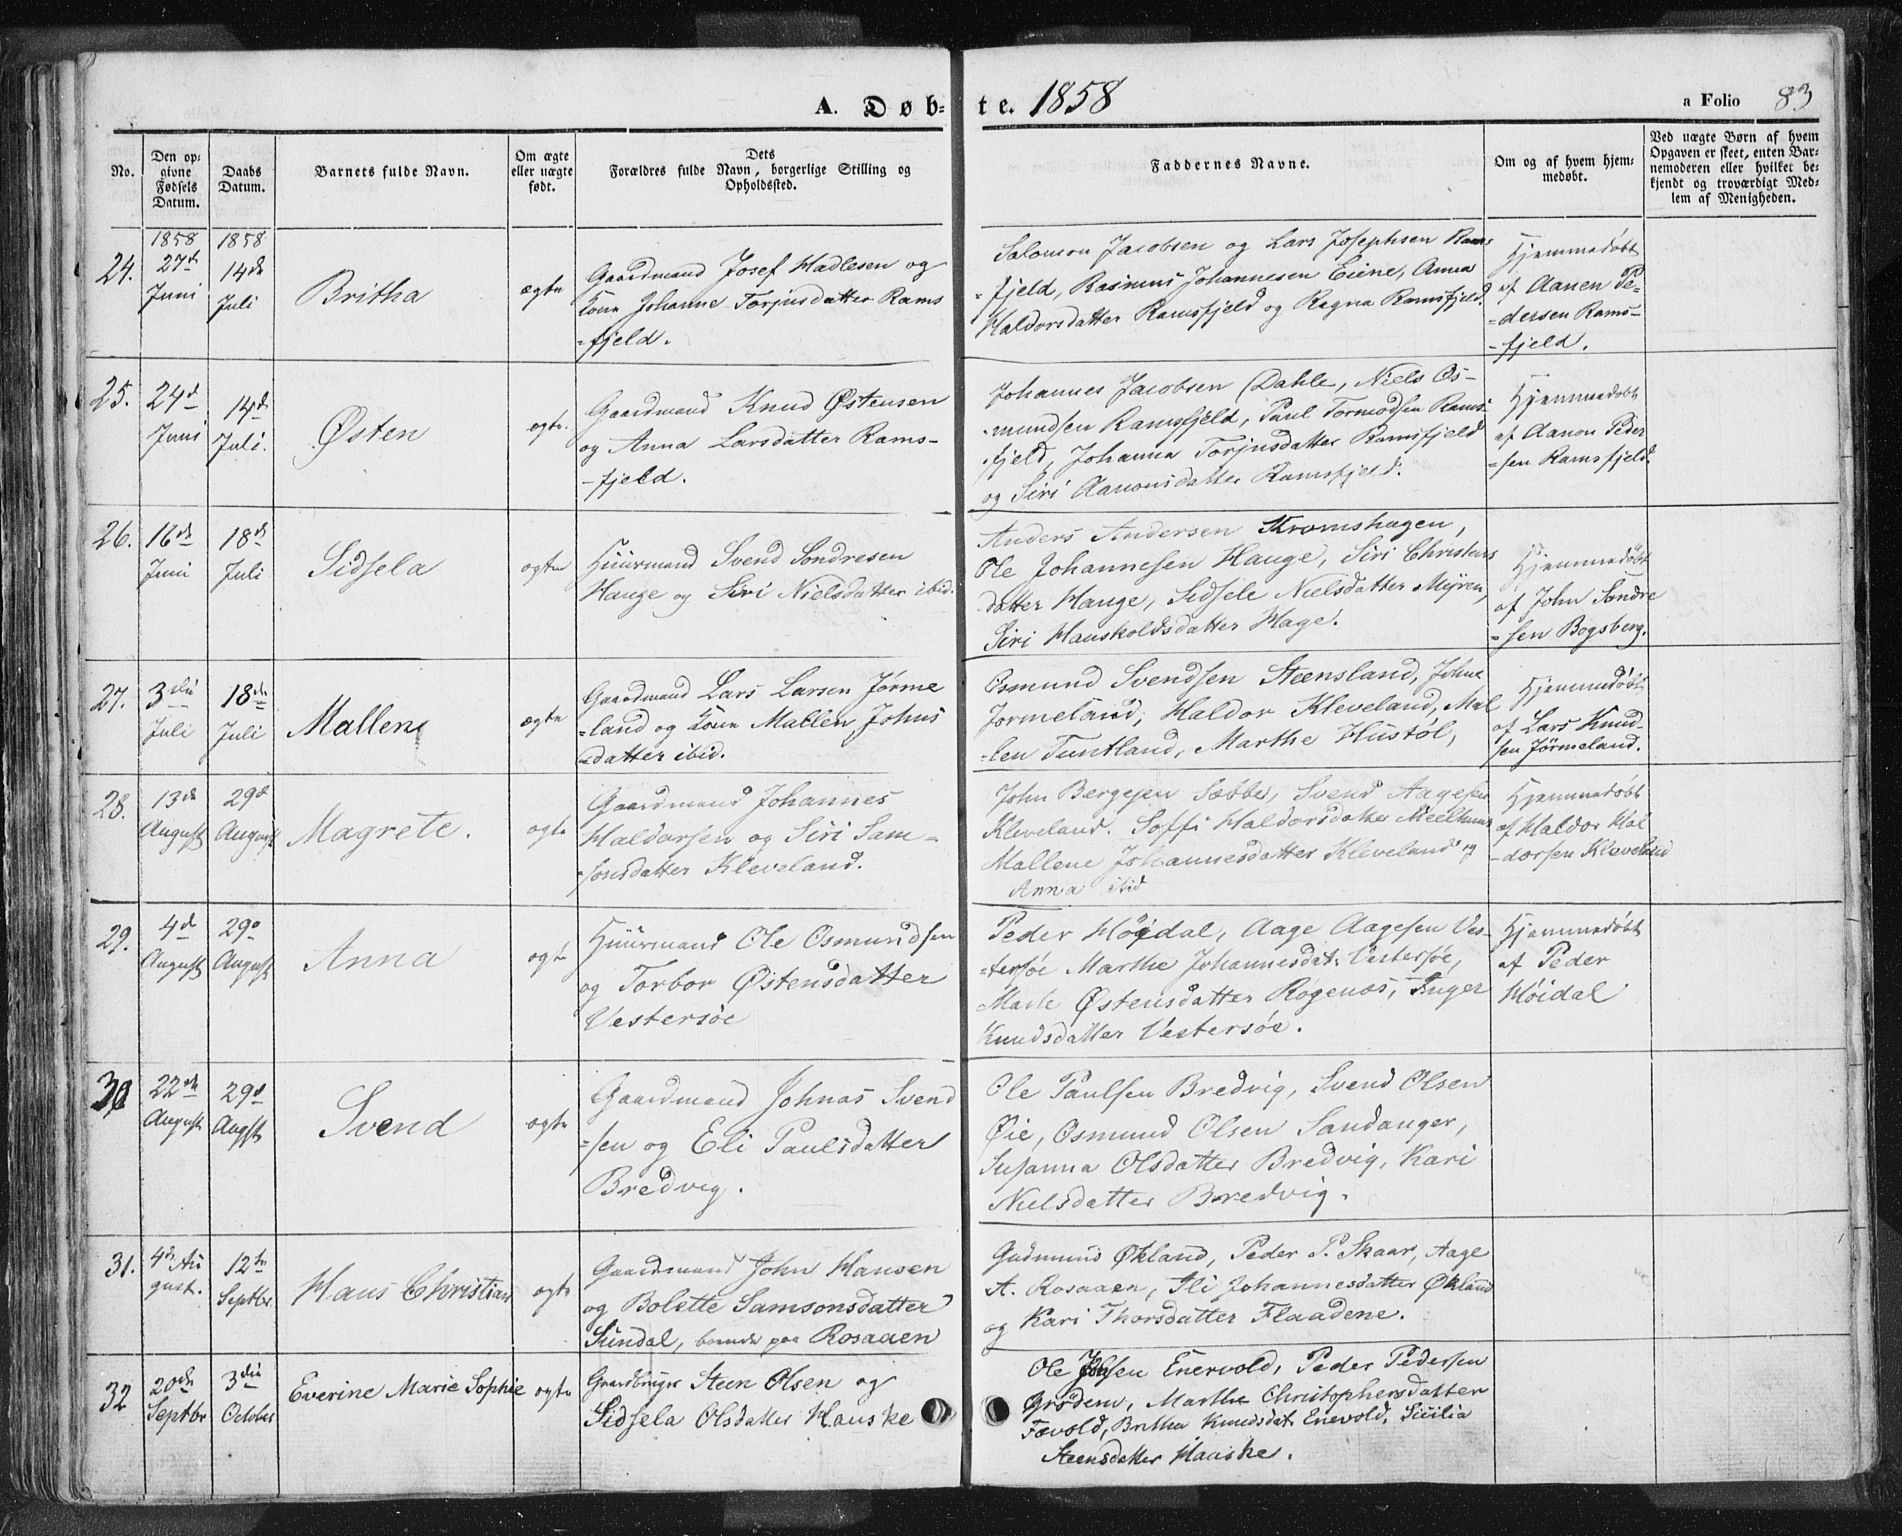 A. Døb-
te. 1858
a Folio 83
No.
Den op-
givne
Fødsels
Datum.
Daabs
Datum.
Barnets fulde Navn.
Om ægte
eller uægte
født.
Dets
Forældres fulde Navn, borgerlige Stilling og
Opholdssted.
Faddernes Navne.
Om og af hvem hjem-
medøbt.
Ved uægte Børn af hvem
Opgaven er skeet, enten Bar-
nemoderen eller hvilket be-
kjendt og troværdigt Med-
lem af Menigheden.
24.
1858
27de
Juni
1858
14de
Juli
Britha
ægte
Gaardmand Josef Hadlesen og
Kone Johanne Torjusdatter Rams
-fjeld.
Salomon Jacobsen og Lars Josephsen Rams
-fjeld, Rasmus Johannesen Eiene, Anna
Haldorsdatter Ramsfjeld og Ragna Ramsfjeld.
Hjemmedøbt
af Aanen Pe-
-dersen Rams-
-fjeld.
25.
24d
Juni
14d
Juli.
Østen
ægte.
Gaardmand Knud Østensen
og Anna Larsdatter Rams-
-fjeld.
Johannes Jacobsen Dahle, Niels Os-
-mundsen Ramsfjeld, Paul Tormodsen Rams-
fjeld, Johanna Torjusdatter Ramsfjeld
og Siri Aanonsdatter Ramsfjeld.
Hjemmedøbt
af Aanon Peder
-sen Ramsfjeld.
26.
16de
Juni
18de
Juli
Sidsela
ægte
Huusmand Svend Sondresen
Hauge og Siri Nielsdatter ibid.
Anders Andersen Kromshagen,
Ole Johannesen Hauge, Siri Christens
datter Hauge, Sidsele Nielsdatter Myren,
Siri Hauskoldsdatter Hage.
Hjemmedøbt
af John Sondre
-sen Bogsberg.
27.
3die
Juli
18de
Juli
Mallene
ægte
Gaardmand Lars Larsen Jørme
-land og Kone Mallen Johns
-datter ibid.
Osmund Svendsen Steensland, Johne
Jormeland, Haldor Kleveland, Mal
-len Tuntland, Marthe Hustøl,
Hjemmedøbt
af Lars Knud-
sen Jørmeland.
28.
13de
August
29d
August
Magrete.
ægte
Gaardmand Johannes
Haldorsen og Siri Sam-
-sonsdatter Kleveland.
John Bergesen Sæbbe, Svend Aagesen
Kleveland. Soffi Haldorsdatter
Mallene Johannesdatter Kleveland og
Anna ibid
Hjemmedøbt
af Haldor Hal
-dorsen Kleveland
29.
4d
August
29d
August
Anna
ægte
Huusmand Ole Osmundsen
og Torbor Østensdatter
Vestersøe
Peder Høidal, Aage Aagesen Ves-
-tersøe Marthe Johannesdat. Vestersøe,
Marte Østensdatter Rogenæs, Inger
Knudsdatter Vestersøe.
Hjemmedøbt
af Peder
Høidal
30
22de
August
29d
Augst
Svend
ægte
Gaardmand Johnas Svend
-sen og Eli Paulsdatter
Bredvig.
Ole Paulsen Bredvig, Svend Olsen
Øie, Osmund Olsen Sandanger,
Susanna Olsdatter Bredvig, Kari
Nielsdatter Bredvig.
31.
4de Au
gust.
12te
Septbr
Hans Christian
ægte
Gaardmand John Hansen
og Bolette Samsonsdatter
Sundal, boende paa Rosaaen
Gudmund Økland, Peder P. Skaar, Aage
A. Rosaaen, Eli Johannesdatter Økland
og Kari Thorsdatter Flaadene.
32
20de
Septbr
3die
October
Everine Marie Sophie
ægte
Gaardbruger Steen Olsen og
Sidsela Olsdatter Hauske
Ole Enervold, Peder Pedersen
Grødem, Marthe Christophersdatter
Fævold, Britha Knudsdat Enevold, Sicilia
Steensdatter Hauske.